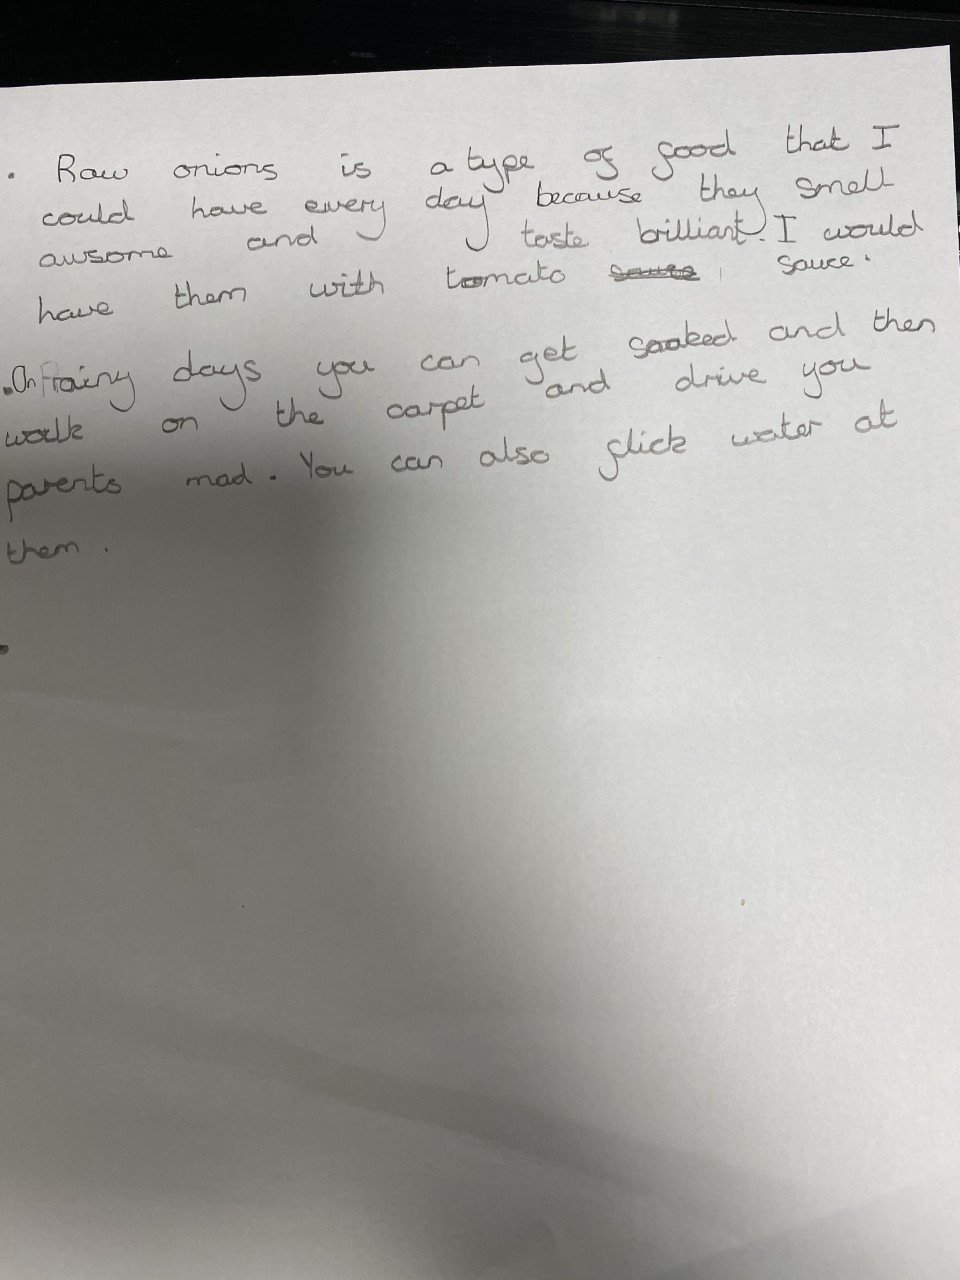 . Raw onions is a type of food that I
could have every day because they smell
awsome and taste brilliant. I would
have them with tomato sauce.
.On rainy days you can get soaked and then
walk on the carpet and drive you
parents mad. You can also flick water at
them.
.